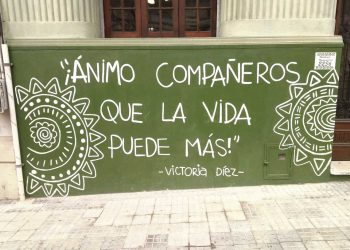 "¡ÁNIMO COMPAÑEROS
QUE LA VIDA
PUEDE MÁS!"
-VICTORIA DÍEZ-